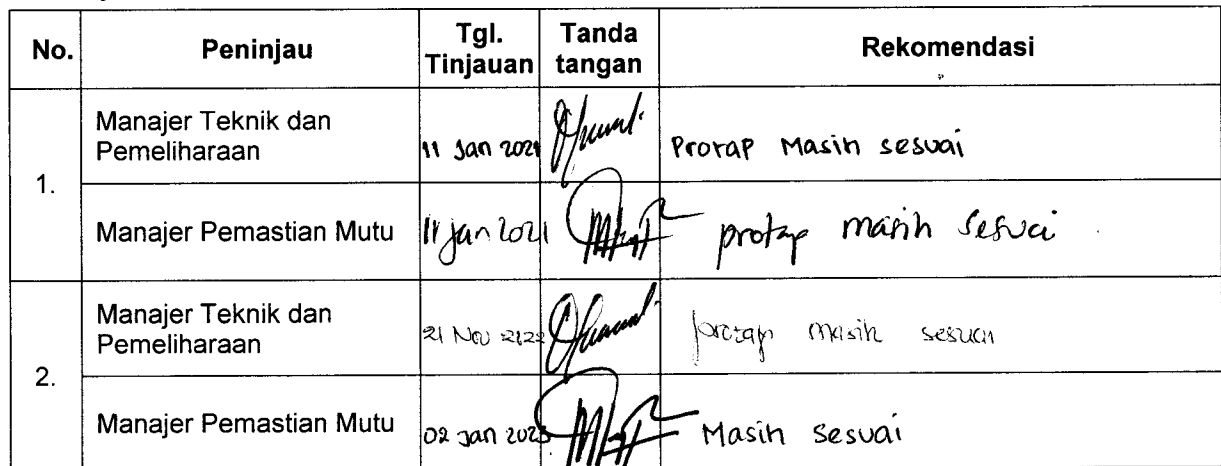 No. Peninjau Tgl. Tinjauan Tanda tangan Rekomendasi
1.
Manajer Teknik dan Pemeliharaan 11 Jan 2021 Protap Masih sesuai
Manajer Pemastian Mutu 11 Jan 2021 protap masih sesuai
2.
Manajer Teknik dan Pemeliharaan 21 Nov 2022 protap masih sesuai
Manajer Pemastian Mutu 02 Jan 2023 Masih sesuai